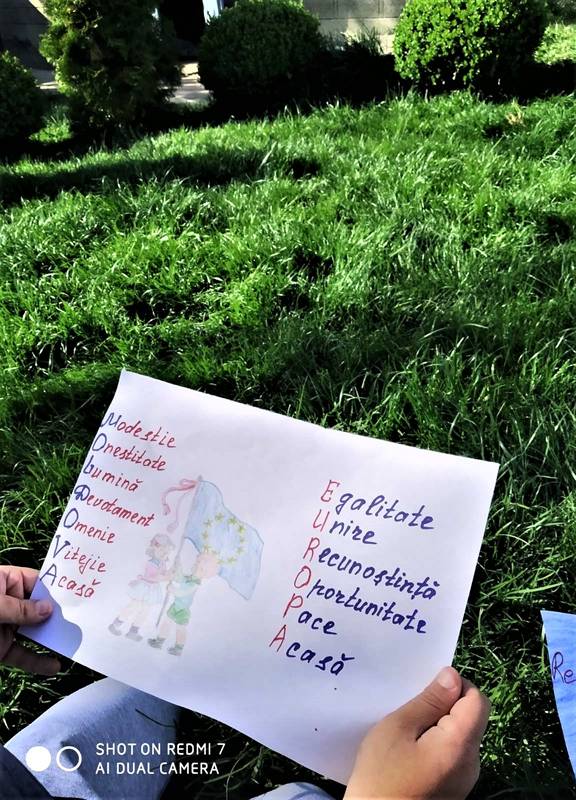 Modestie
Onestitate
Lumină
Devotament
Omenie
Vitejie
Acasă
Egalitate
Unire
Recunoștință
Oportunitate
Pace
Acasă
Re
SHOT ON REDMI 7
AI DUAL CAMERA